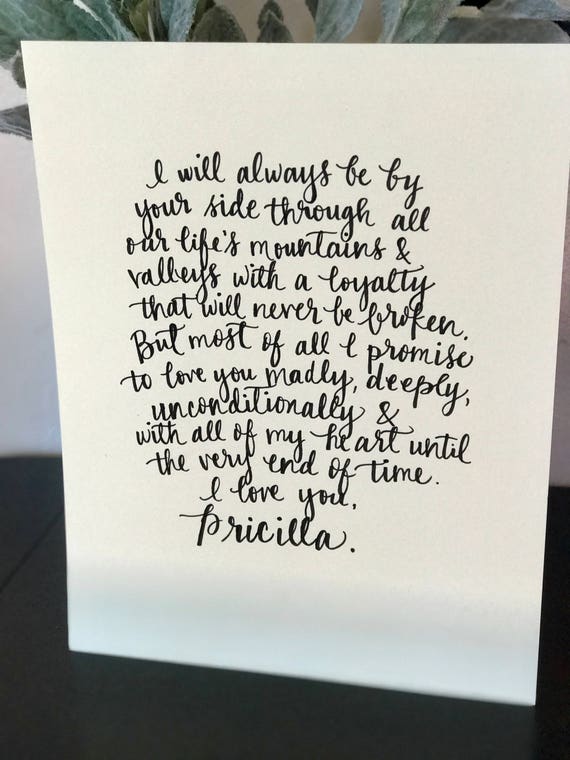 I will always be by
your side through all
our life's mountains &
valleys with a loyalty
that will never be broken.
But most of all I promise
to love you madly, deeply,
unconditionally &
with all of my heart until
the very end of time.
I love you,
Pricilla.